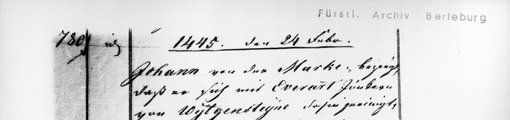 Fürstl. Archiv Berleburg
780
1445. den 24 Febr.
Johann von der Marke, bezeugt,
daß er sich mit Everart Junkern
von Wytgensteyne dahin geeinigt,